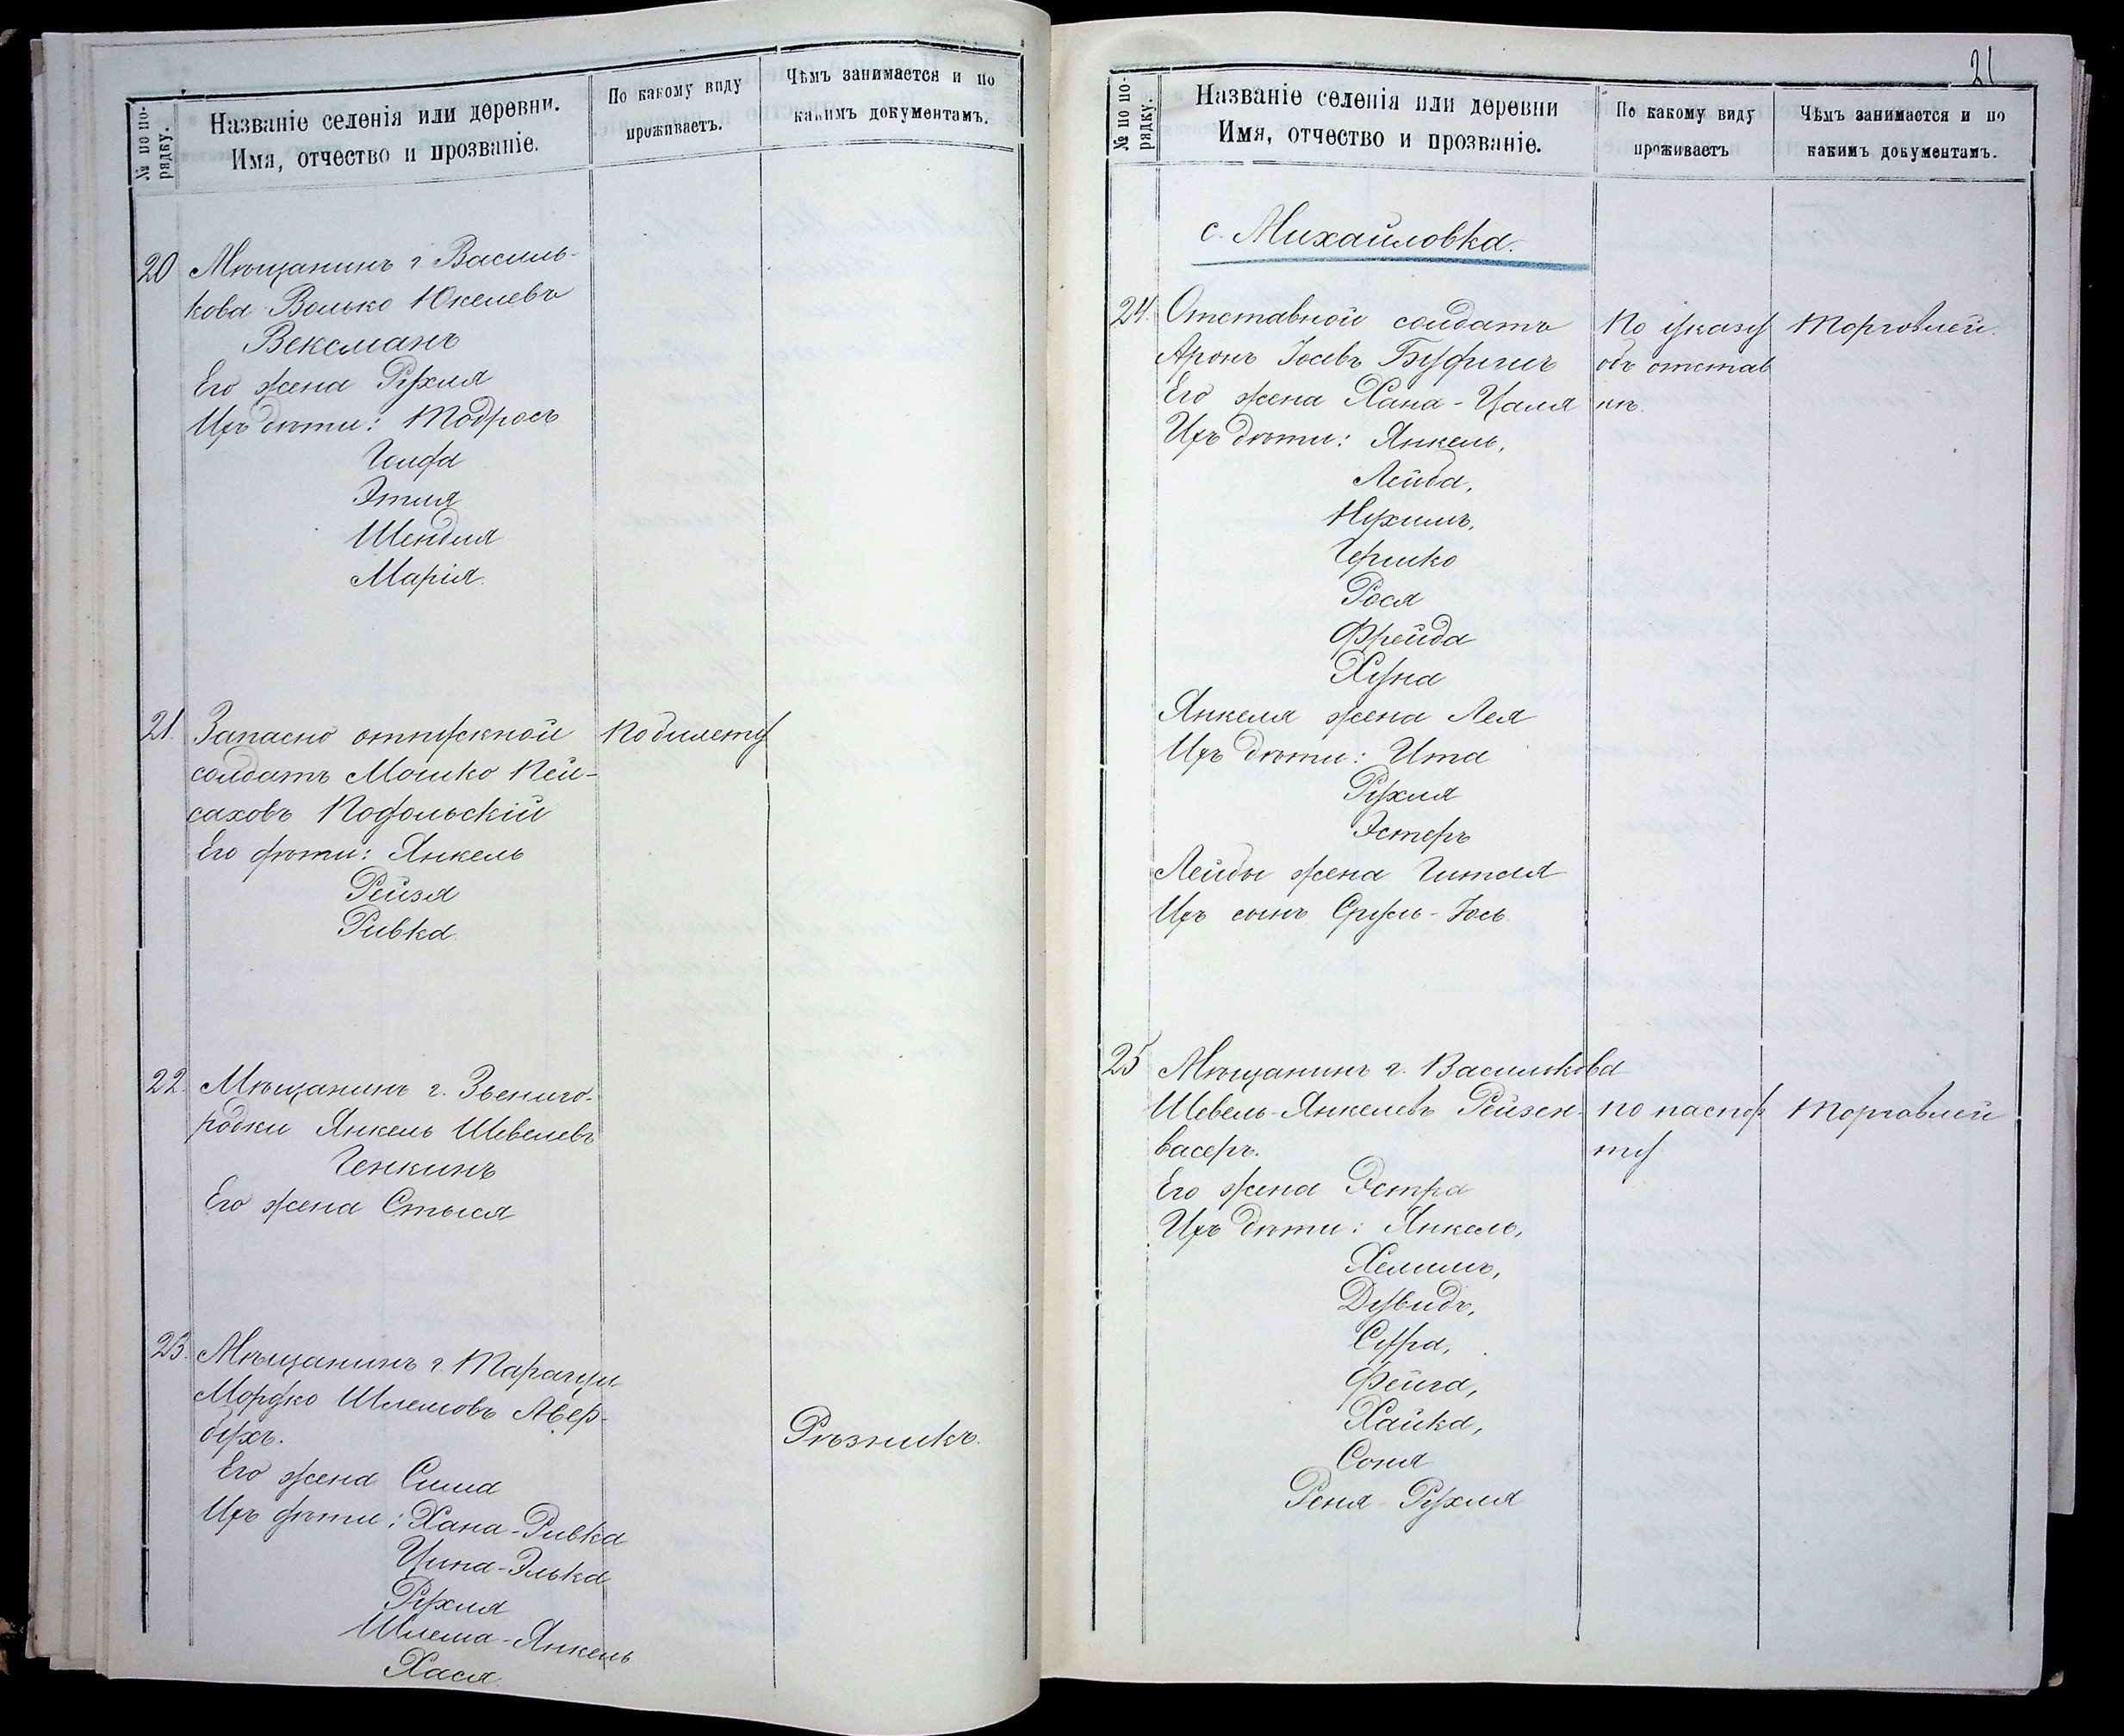 № по по-
рядку.
Названіе селенія или деревни.
Имя, отчество и прозваніе.
По какому виду
проживаетъ.
Чѣмъ занимается и по
какимъ документамъ.
20 Мѣщанинъ г. Василь-
кова Волько Юкелевъ
Вексманъ
Его жена Рухля
Ихъ дѣти: Тодросъ
Голда
Этля
Шендля
Марія.
21. Запасно отпускной По билету
солдатъ Мошко Пей-
саховъ Подольскій
Его дѣти: Янкель
Рейзя
Ривка.
22. Мѣщанинъ г. Звениго-
родки Янкель Шевелевъ
Генкинъ
Его жена Стыся
23. Мѣщанинъ г. Таращи
Мордко Шлемовъ Авер-
бухъ. Рѣзникъ.
Его жена Сима
Ихъ дѣти: Хана-Ривка
Цина-Элька
Рухля
Шлема-Янкель
Хася.
21
№ по по-
рядку.
Названіе селенія или деревни
Имя, отчество и прозваніе.
По какому виду
проживаетъ
Чѣмъ занимается и по
какимъ документамъ.
с. Михайловка.
24. Отставной солдатъ По указу Торговлей.
Аронъ Іосевъ объ отстав
Его жена Хана-Цаля кѣ.
Ихъ дѣти: Янкель,
Лейба,
Нухимъ,
Гершко
Рося
Фрейда
Хуна
Янкеля жена Лея
Ихъ дѣти: Ита
Рухля
Эстеръ
Лейбы жена Гитля
Ихъ сынъ Сруль-Іось.
25 Мѣщанинъ г. Василькова
Шевель-Янкелевъ Рейзен- по паспор Торговлей
васеръ. ту
Его жена Эстра
Ихъ дѣти: Янкель,
Хелимъ,
Дувидъ,
Сура,
Фейга,
Хайка,
Соня
Реня-Рухля